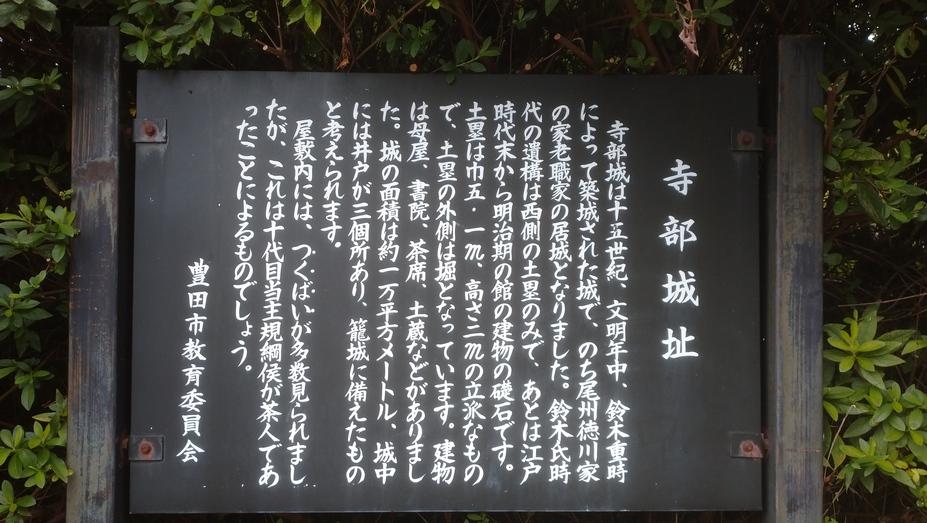 寺部城址
寺部城は十五世紀、文明年中、鈴木重時
によって築城された城で、のち尾州徳川家
の家老職家の居城となりました。鈴木氏時
代の遺構は西側の土塁のみで、あとは江戸
時代末から明治期の館の建物の礎石です。
土塁は巾五・一m、高さ二mの立派なもの
で、土塁の外側は堀となっています。建物
は母屋、書院、茶席、土蔵などがありまし
た。城の面積は約一万平方メートル、城中
には井戸が三個所あり、籠城に備えたもの
と考えられます。
屋敷内には、つくばいが多数見られまし
たが、これは十代目当主規綱侯が茶人であ
ったことによるものでしょう。
豊田市教育委員会